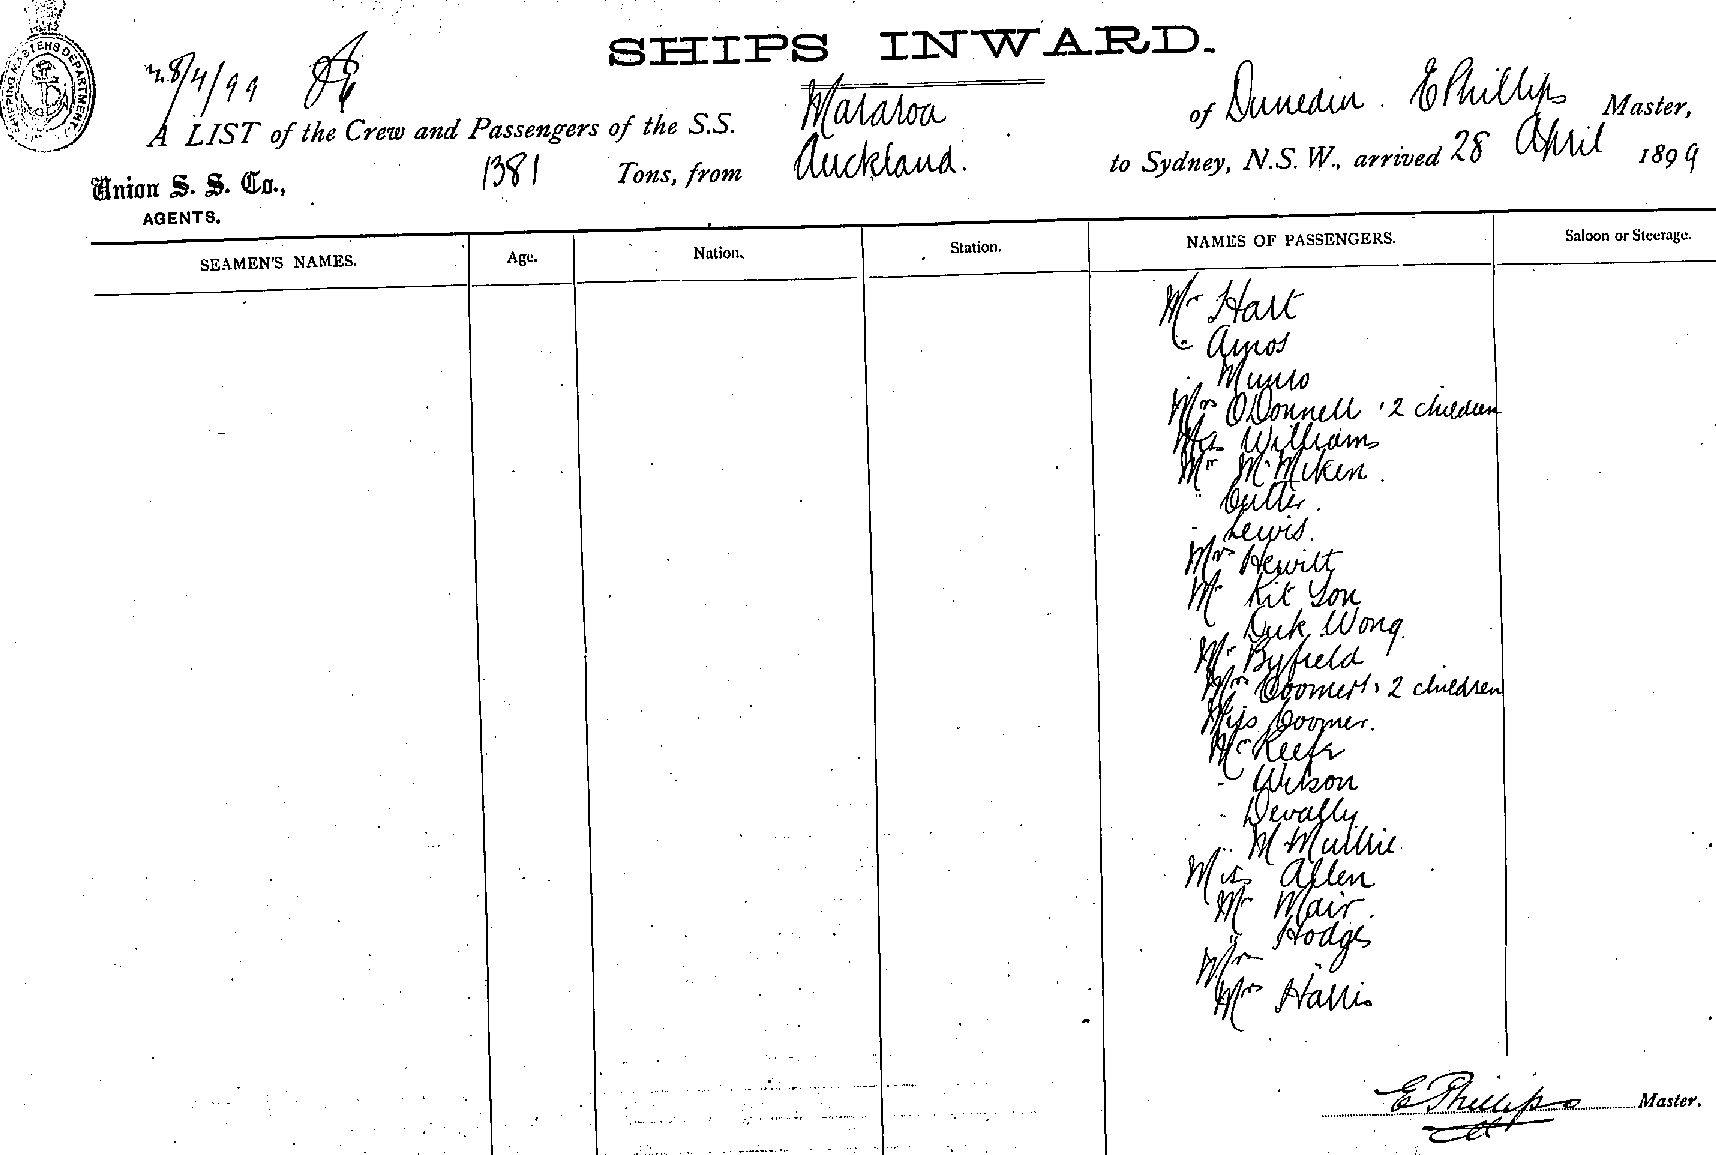 SHIPS INWARD.
28/4/99
A LIST of the Crew and Passengers of the S.S. Mararoa of Dunedin. E Phillips Master,
Union S. S. Co., 1381 Tons, from Auckland. to Sydney, N.S.W., arrived 28 April 1899
AGENTS.
SEAMEN'S NAMES. Age. Nation. Station. NAMES OF PASSENGERS. Saloon or Steerage.
Mr Hart
" Amos
" Munro
Mrs O'Donnell 2 children
Williams
Mr McMiken.
" Cutler.
" Lewis.
Mrs Hewitt
Mr Kit Son
Duk Wong
Mr Byfield
Mrs Coomer 2 children
Miss Coomer.
Mr Keefe
" Wilson
" Devally
" McMullie
Miss Allen
Mr Mair.
" Hodges
Mrs "
Mrs Hallis
E Phillips Master.